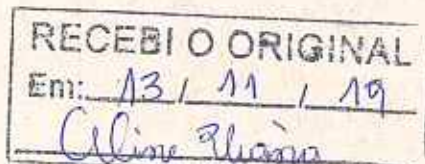 RECEBI O ORIGINAL
Em: 13 / 11 / 19
Celine